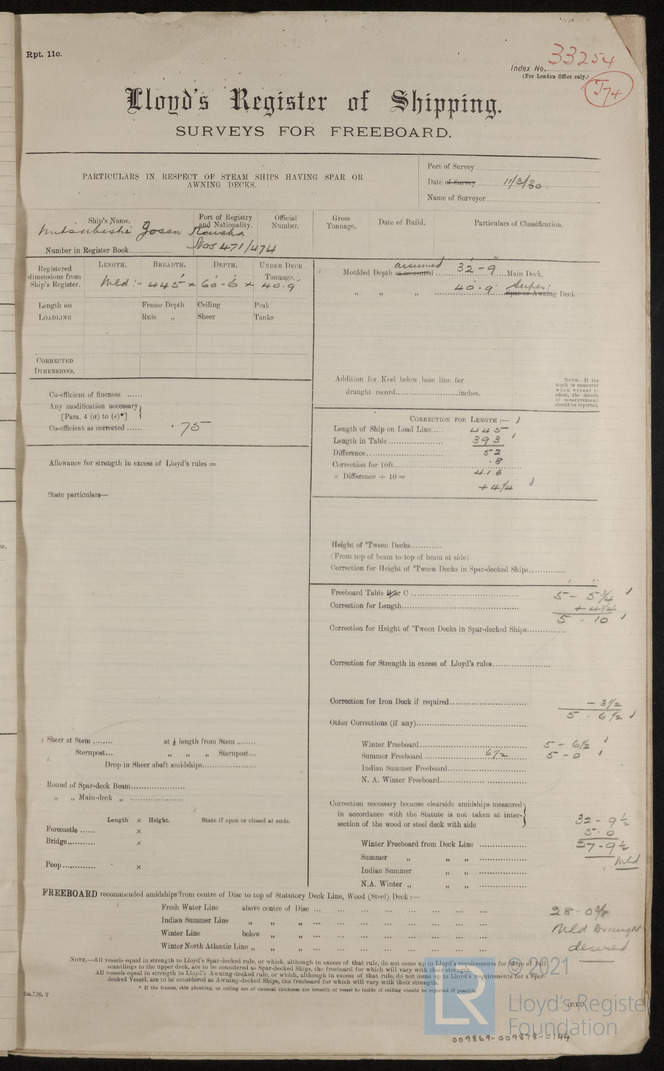 Rpt. 11c.
Index No. 33254
(For London Office only.)
J74
Lloyd's Register of Shipping.
SURVEYS FOR FREEBOARD.
PARTICULARS IN RESPECT OF STEAM SHIPS HAVING SPAR OR
AWNING DECKS.
Port of Survey
Date of Survey 11/3/30.
Name of Surveyor
Ship's Name.
Port of Registry
and Nationality.
Official
Number.
Gross
Tonnage.
Date of Build.
Particulars of Classification.
Mitsubishi Zosen Kaisha
Number in Register Book Nos 471/474
Registered
dimensions from
Ship's Register.
LENGTH. BREADTH. DEPTH. UNDER DECK
TONNAGE.
Mld :- 445 × 60-6 × 40.9
Length on
LOADLINE
Frame Depth
Rule „
Ceiling
Sheer
Peak
Tanks
CORRECTED
DIMENSIONS.
Co-efficient of fineness ......
Any modification necessary
[Para. 4 (a) to (e)*]
Co-efficient as corrected ...... .75
Allowance for strength in excess of Lloyd's rules =
State particulars—
Sheer at Stem ........ at ⅛ length from Stem ........
Sternpost... „ „ „ Sternpost...
Drop in Sheer abaft amidships
Round of Spar-deck Beam
„ „ Main-deck „
Length × Height. State if open or closed at ends.
Forecastle ...... ×
Bridge ×
Poop ×
assumed
Moulded Depth as measured 32-9 Main Deck.
„ „ „ 40.9 Super Spar or Awning Deck
Addition for Keel below base line for
draught record inches.
NOTE.—If the
depth is measured
when vessel is
afloat, the details
of measurement
should be reported.
CORRECTION FOR LENGTH :—
Length of Ship on Load Line.... 445
Length in Table 393
Difference 52
Correction for 10ft. .8
× Difference ÷ 10 = 41.6
+4¼
Height of 'Tween Decks
(From top of beam to top of beam at side)
Correction for Height of 'Tween Decks in Spar-decked Ships
Freeboard Table B or C 5 - 5¾
Correction for Length + 4¼
5 - 10
Correction for Height of 'Tween Decks in Spar-decked Ships
Correction for Strength in excess of Lloyd's rules
Correction for Iron Deck if required - 3½
5 - 6½
Other Corrections (if any)
Winter Freeboard 5 - 6½
Summer Freeboard 6½ 5 - 0
Indian Summer Freeboard
N. A. Winter Freeboard
Correction necessary because clearside amidships measured
in accordance with the Statute is not taken at inter-
section of the wood or steel deck with side
32 - 9½
5 - 0
27 - 9½
Mld
Winter Freeboard from Deck Line
Summer „ „ „
Indian Summer „ „
N.A. Winter „ „ „
FREEBOARD recommended amidships from centre of Disc to top of Statutory Deck Line, Wood (Steel) Deck:—
Fresh Water Line above centre of Disc
Indian Summer Line „ „ „
Winter Line below „ „
Winter North Atlantic Line „ „ „
28 - 0⅜
Mld Draught
desired
NOTE.—All vessels equal in strength to Lloyd's Spar-decked rule, or which, although in excess of that rule, do not come up to Lloyd's requirements for Ships of full
scantlings to the upper deck, are to be considered as Spar-decked Ships, the freeboard for which will vary with their strength.
All vessels equal in strength to Lloyd's Awning-decked rule, or which, although in excess of that rule, do not come up to Lloyd's requirements for a Spar-
decked Vessel, are to be considered as Awning-decked Ships, the freeboard for which will vary with their strength.
© 2021
LR
Lloyd's Register
Foundation
009869-009878-0144